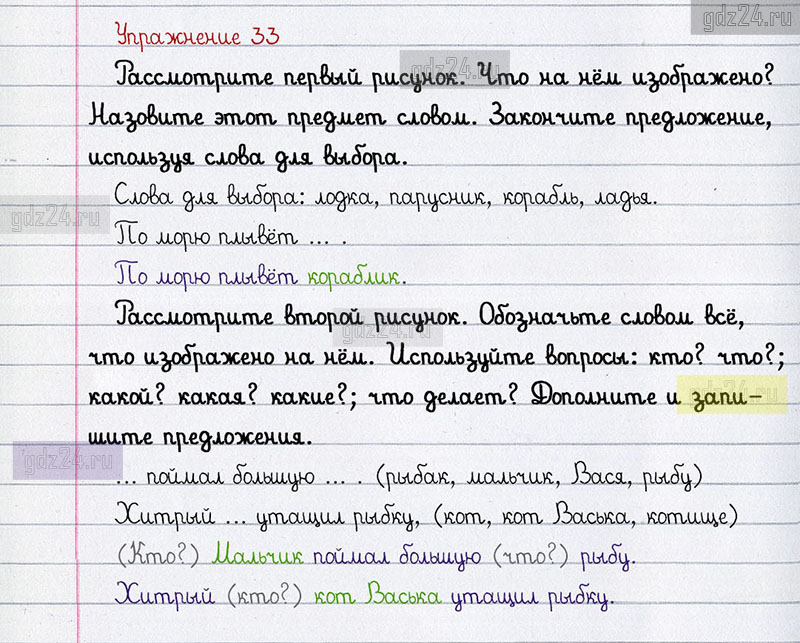 gdz24.ru
Упражнение 33
Рассмотрите первый рисунок. Что на нём изображено?
gdz24.ru
Назовите этот предмет словом. Закончите предложение,
используя слова для выбора.
Слова для выбора: лодка, парусник, корабль, ладья.
gdz24.ru
По морю плывёт ... .
По морю плывёт кораблик.
Рассмотрите второй рисунок. Обозначьте словом всё,
gdz24.ru
что изображено на нём. Используйте вопросы: кто? что?;
какой? какая? какие?; что делает? Дополните и запи-
gdz24.ru
шите предложения.
gdz24.ru
... поймал большую ... . (рыбак, мальчик, Вася, рыбу)
Хитрый ... утащил рыбку, (кот, кот Васька, котище)
(Кто?) Мальчик поймал большую (что?) рыбу.
Хитрый (кто?) кот Васька утащил рыбку.